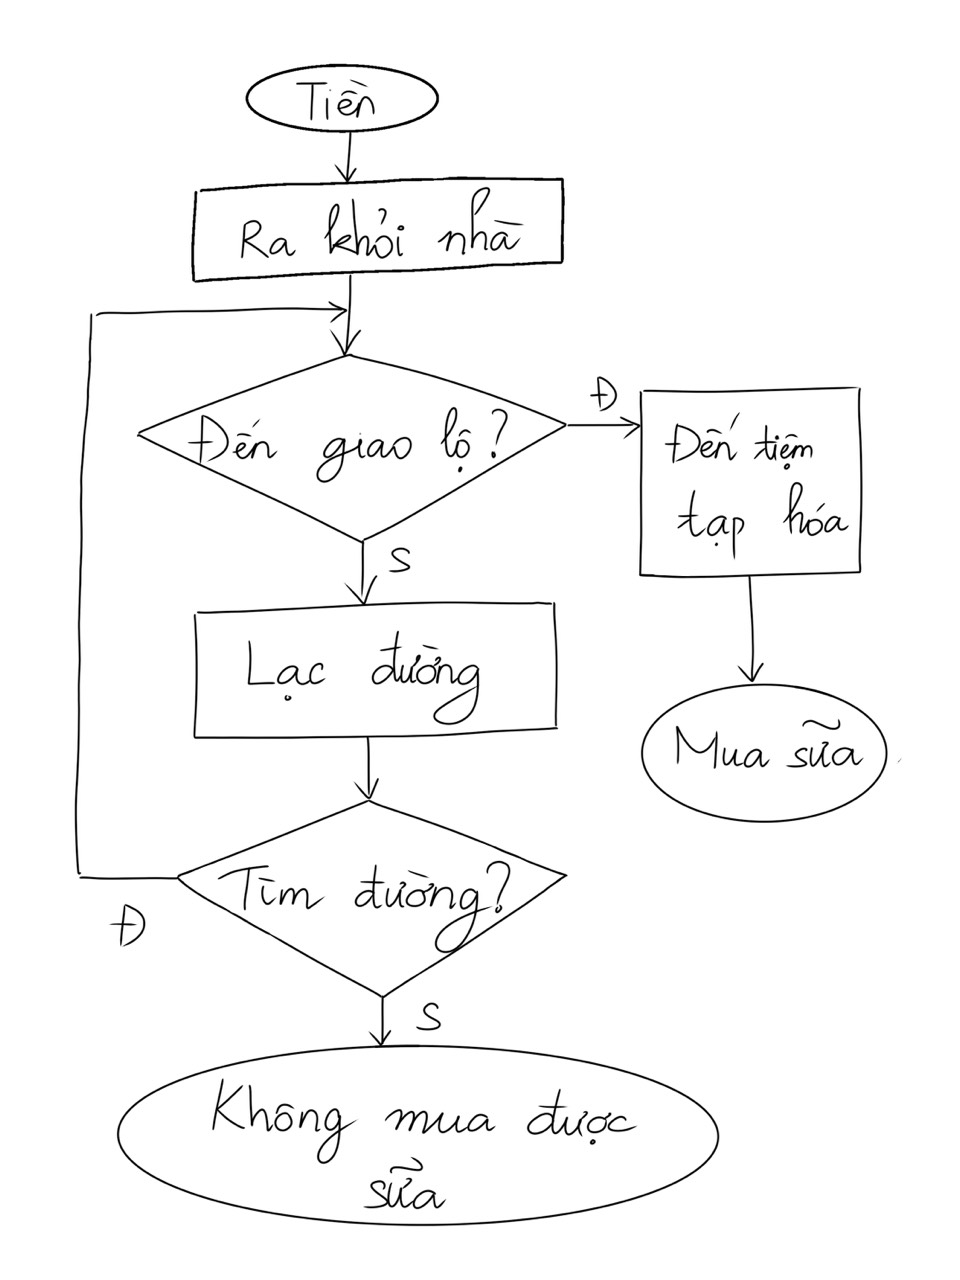 Tiền
Ra khỏi nhà
Đến giao lộ?
Đ
Đến tiệm
tạp hóa
S
Lạc đường
Mua sữa
Tìm đường?
Đ
S
Không mua được
sữa